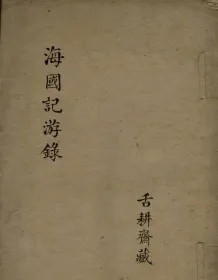 海國記游錄
舌耕齋藏